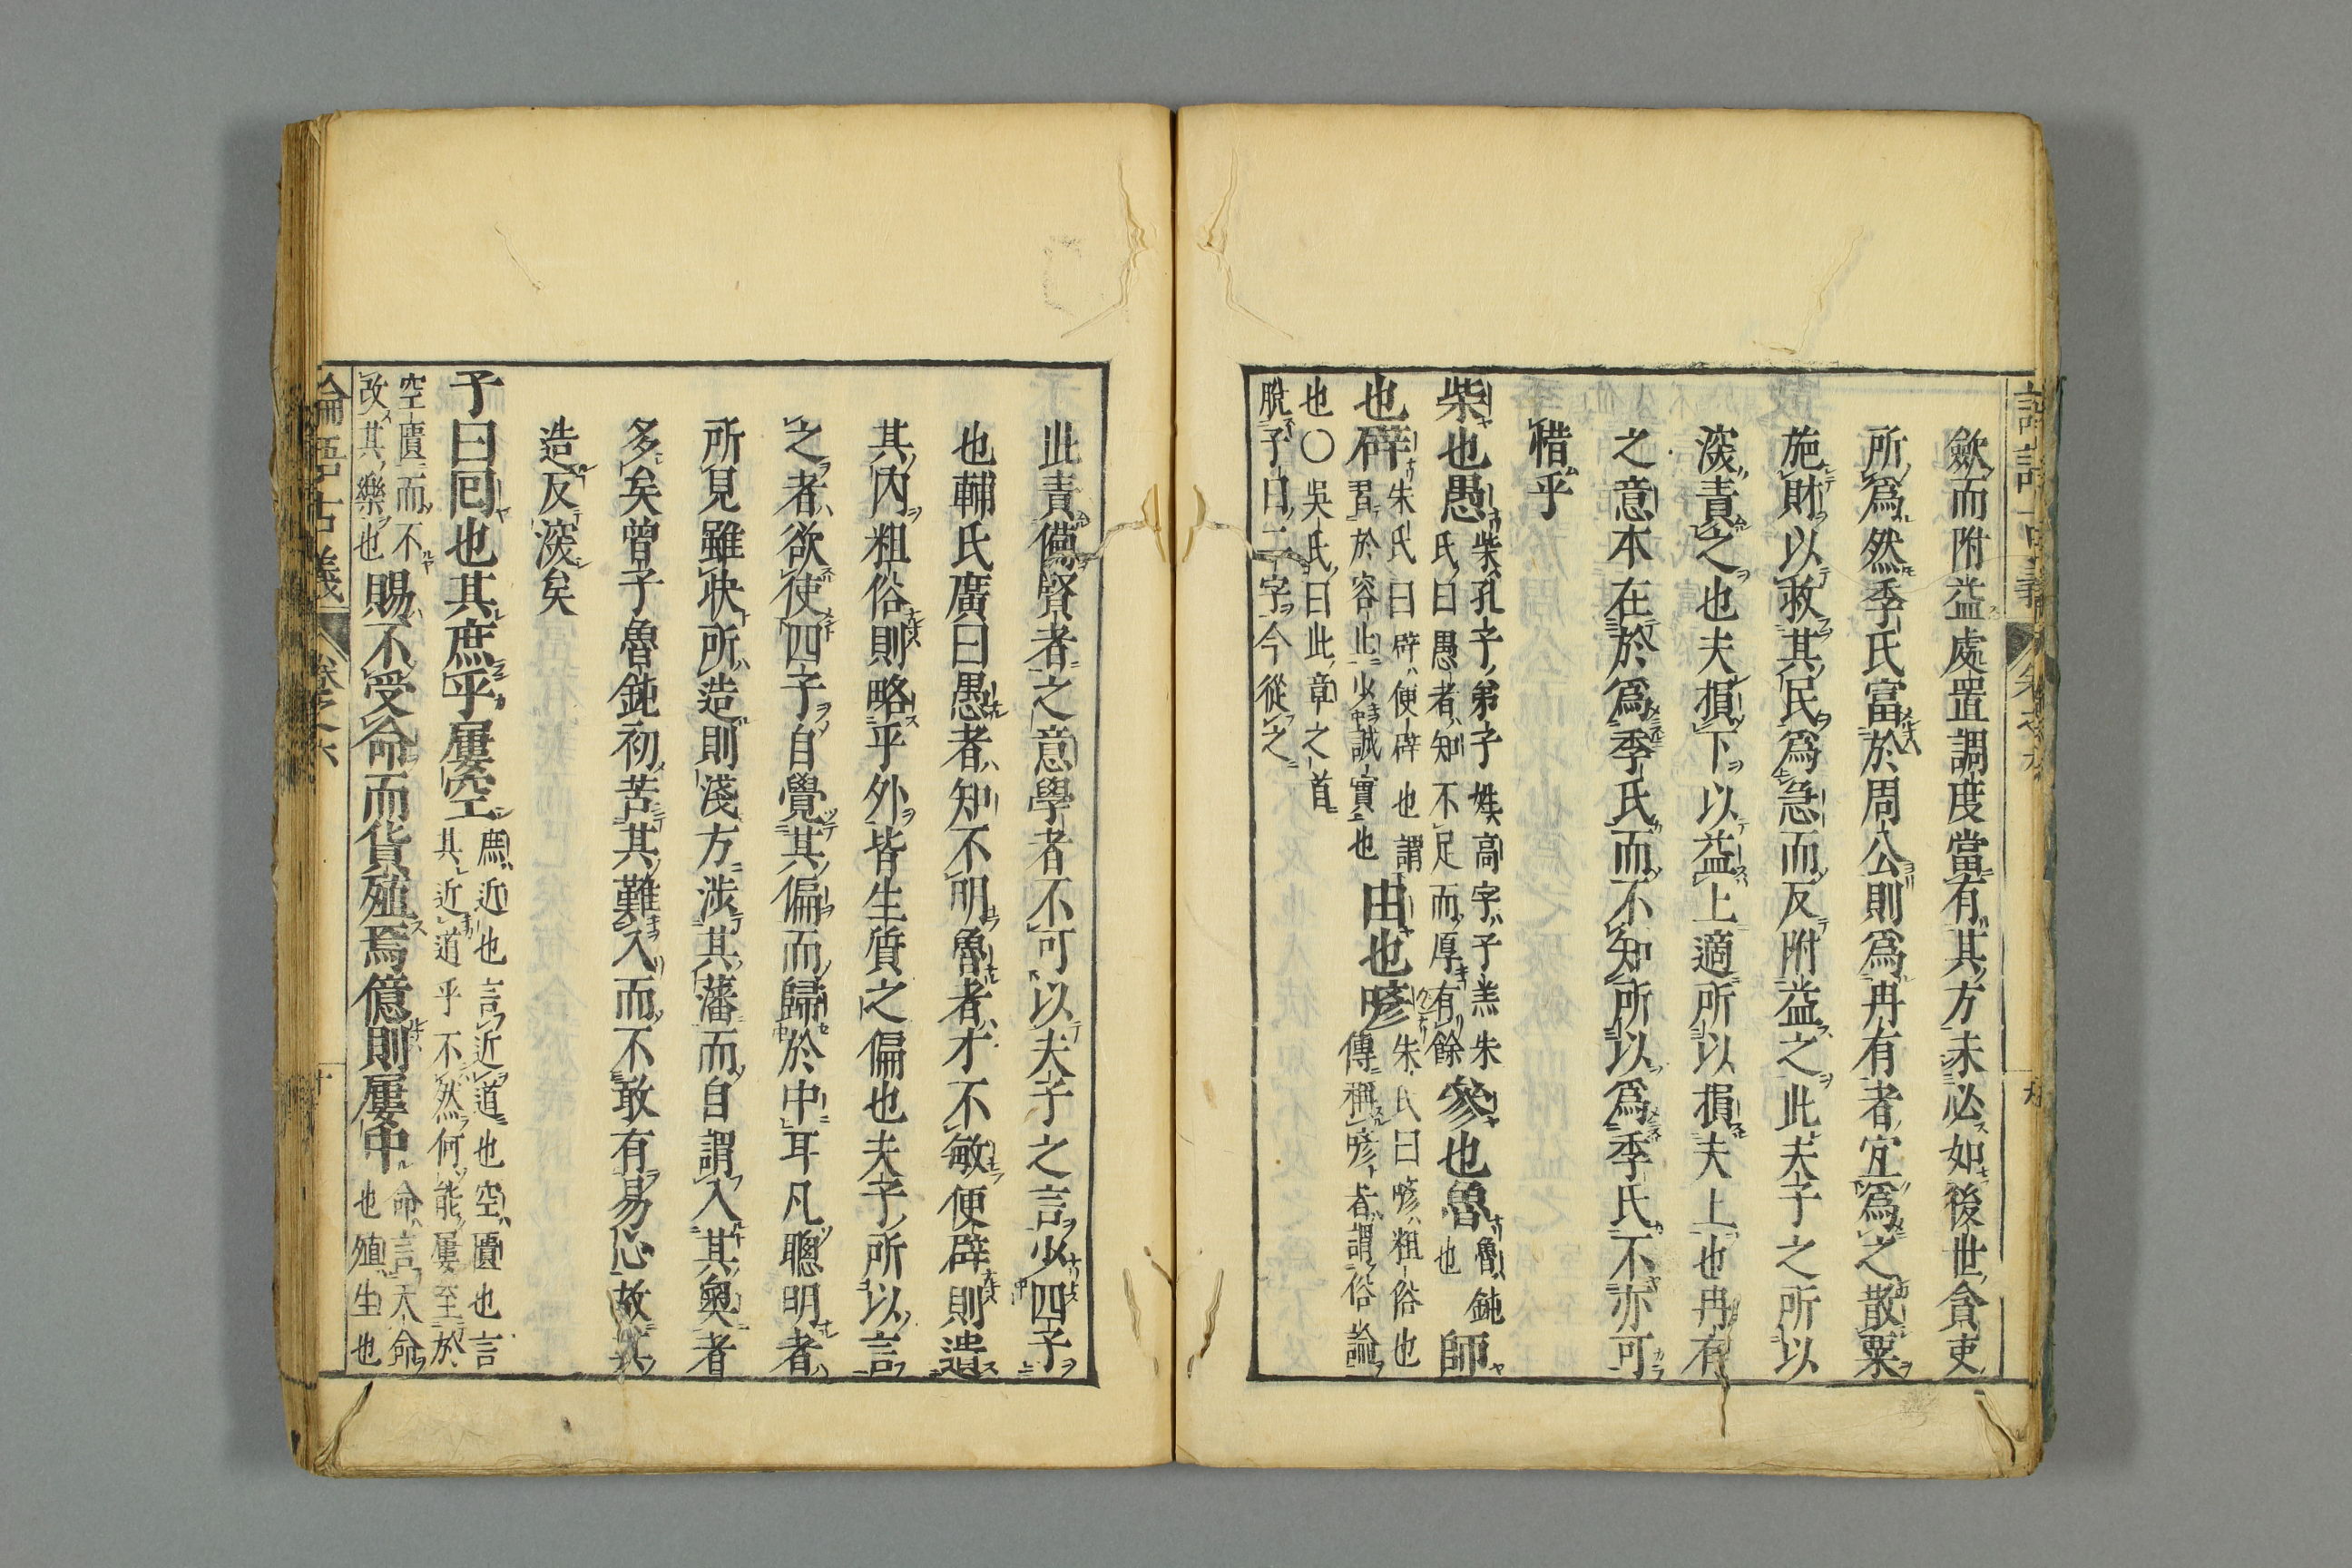 歛而附益處置調度當有其方未必如後世貪吏
所爲然季氏富於周公則爲冉有者宜爲之散粟
施財以救其民爲急而反附益之此夫子之所以
深責之也夫損下以益上適所以損夫上也冉有
之意本在於爲季氏而不知所以爲季氏不亦可
惜乎
柴也愚柴孔子弟子姓高字子羔朱氏曰愚者知不足而厚有餘參也魯魯鈍也師
也辟朱氏曰辟便辟也謂習於容止少誠實也由也喭朱氏曰喭粗俗也傳稱喭者謂俗論
也〇吳氏曰此章之首脫子曰二字今從之
論語古義 卷之六
此責備賢者之意學者不可以夫子之言少四子
也輔氏廣曰愚者知不明魯者才不敏便辟則遺
其内粗俗則略乎外皆生質之偏也夫子所以言
之者欲使四子自覺其偏而歸於中耳凡聰明者
所見雖快所造則淺方涉其藩而自謂入其奥者
多矣曾子魯鈍初苦其難入而不敢有易心故其
造反深矣
子曰回也其庶乎屢空庶近也言近道也空匱也言其近道乎不然何能屢至於
空匱而不改其樂也賜不受命而貨殖焉億則屢中命言天命也殖生也
論語古義 卷之六 十